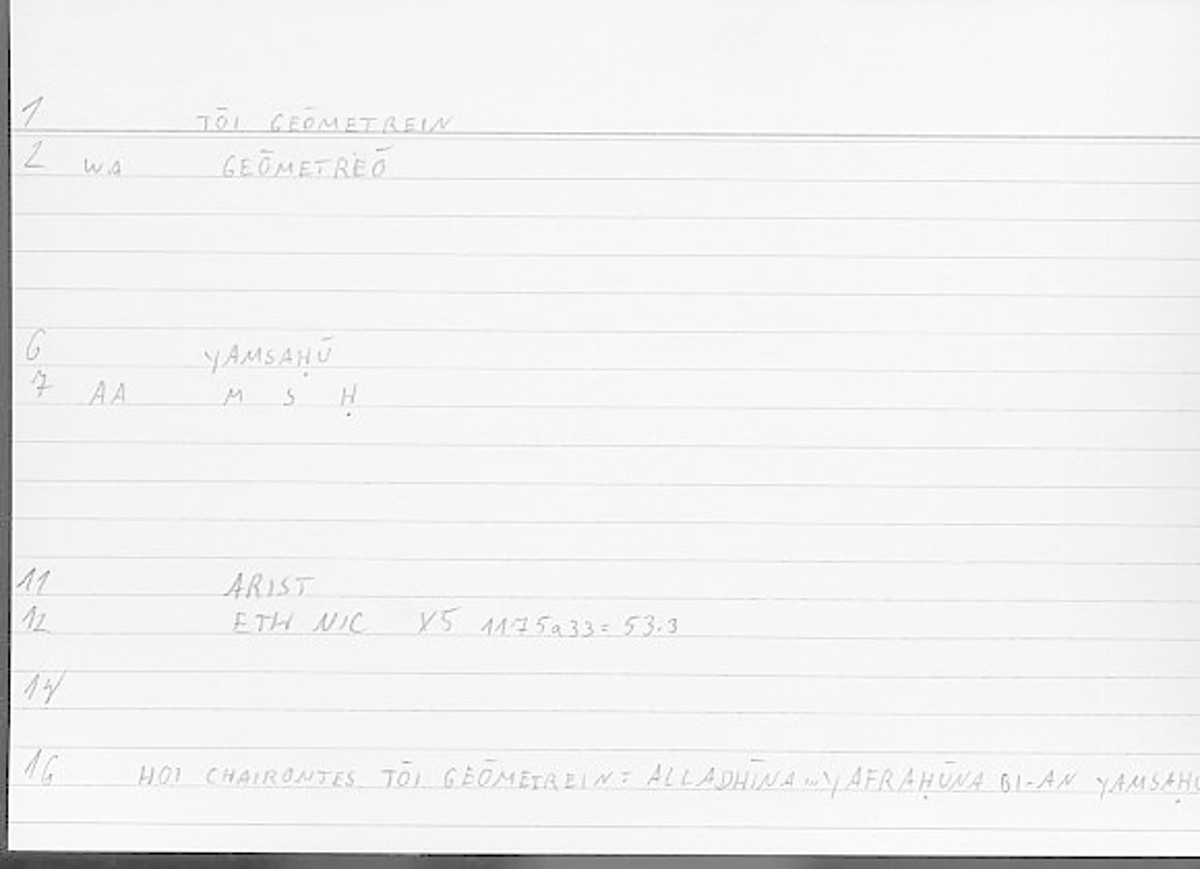 1 TŌI GEŌMETREIN
2 WA GEŌMETRĔŌ
6 YAMSAḤŪ
7 AA M S Ḥ
11 ARIST
12 ETH NIC X5 1175a33=53.3
14
16 HOI CHAIRONTES TŌI GEŌMETREIN = ALLADHĪNA ... YAFRAḤŪNA BI-AN YAMSAḤŪ